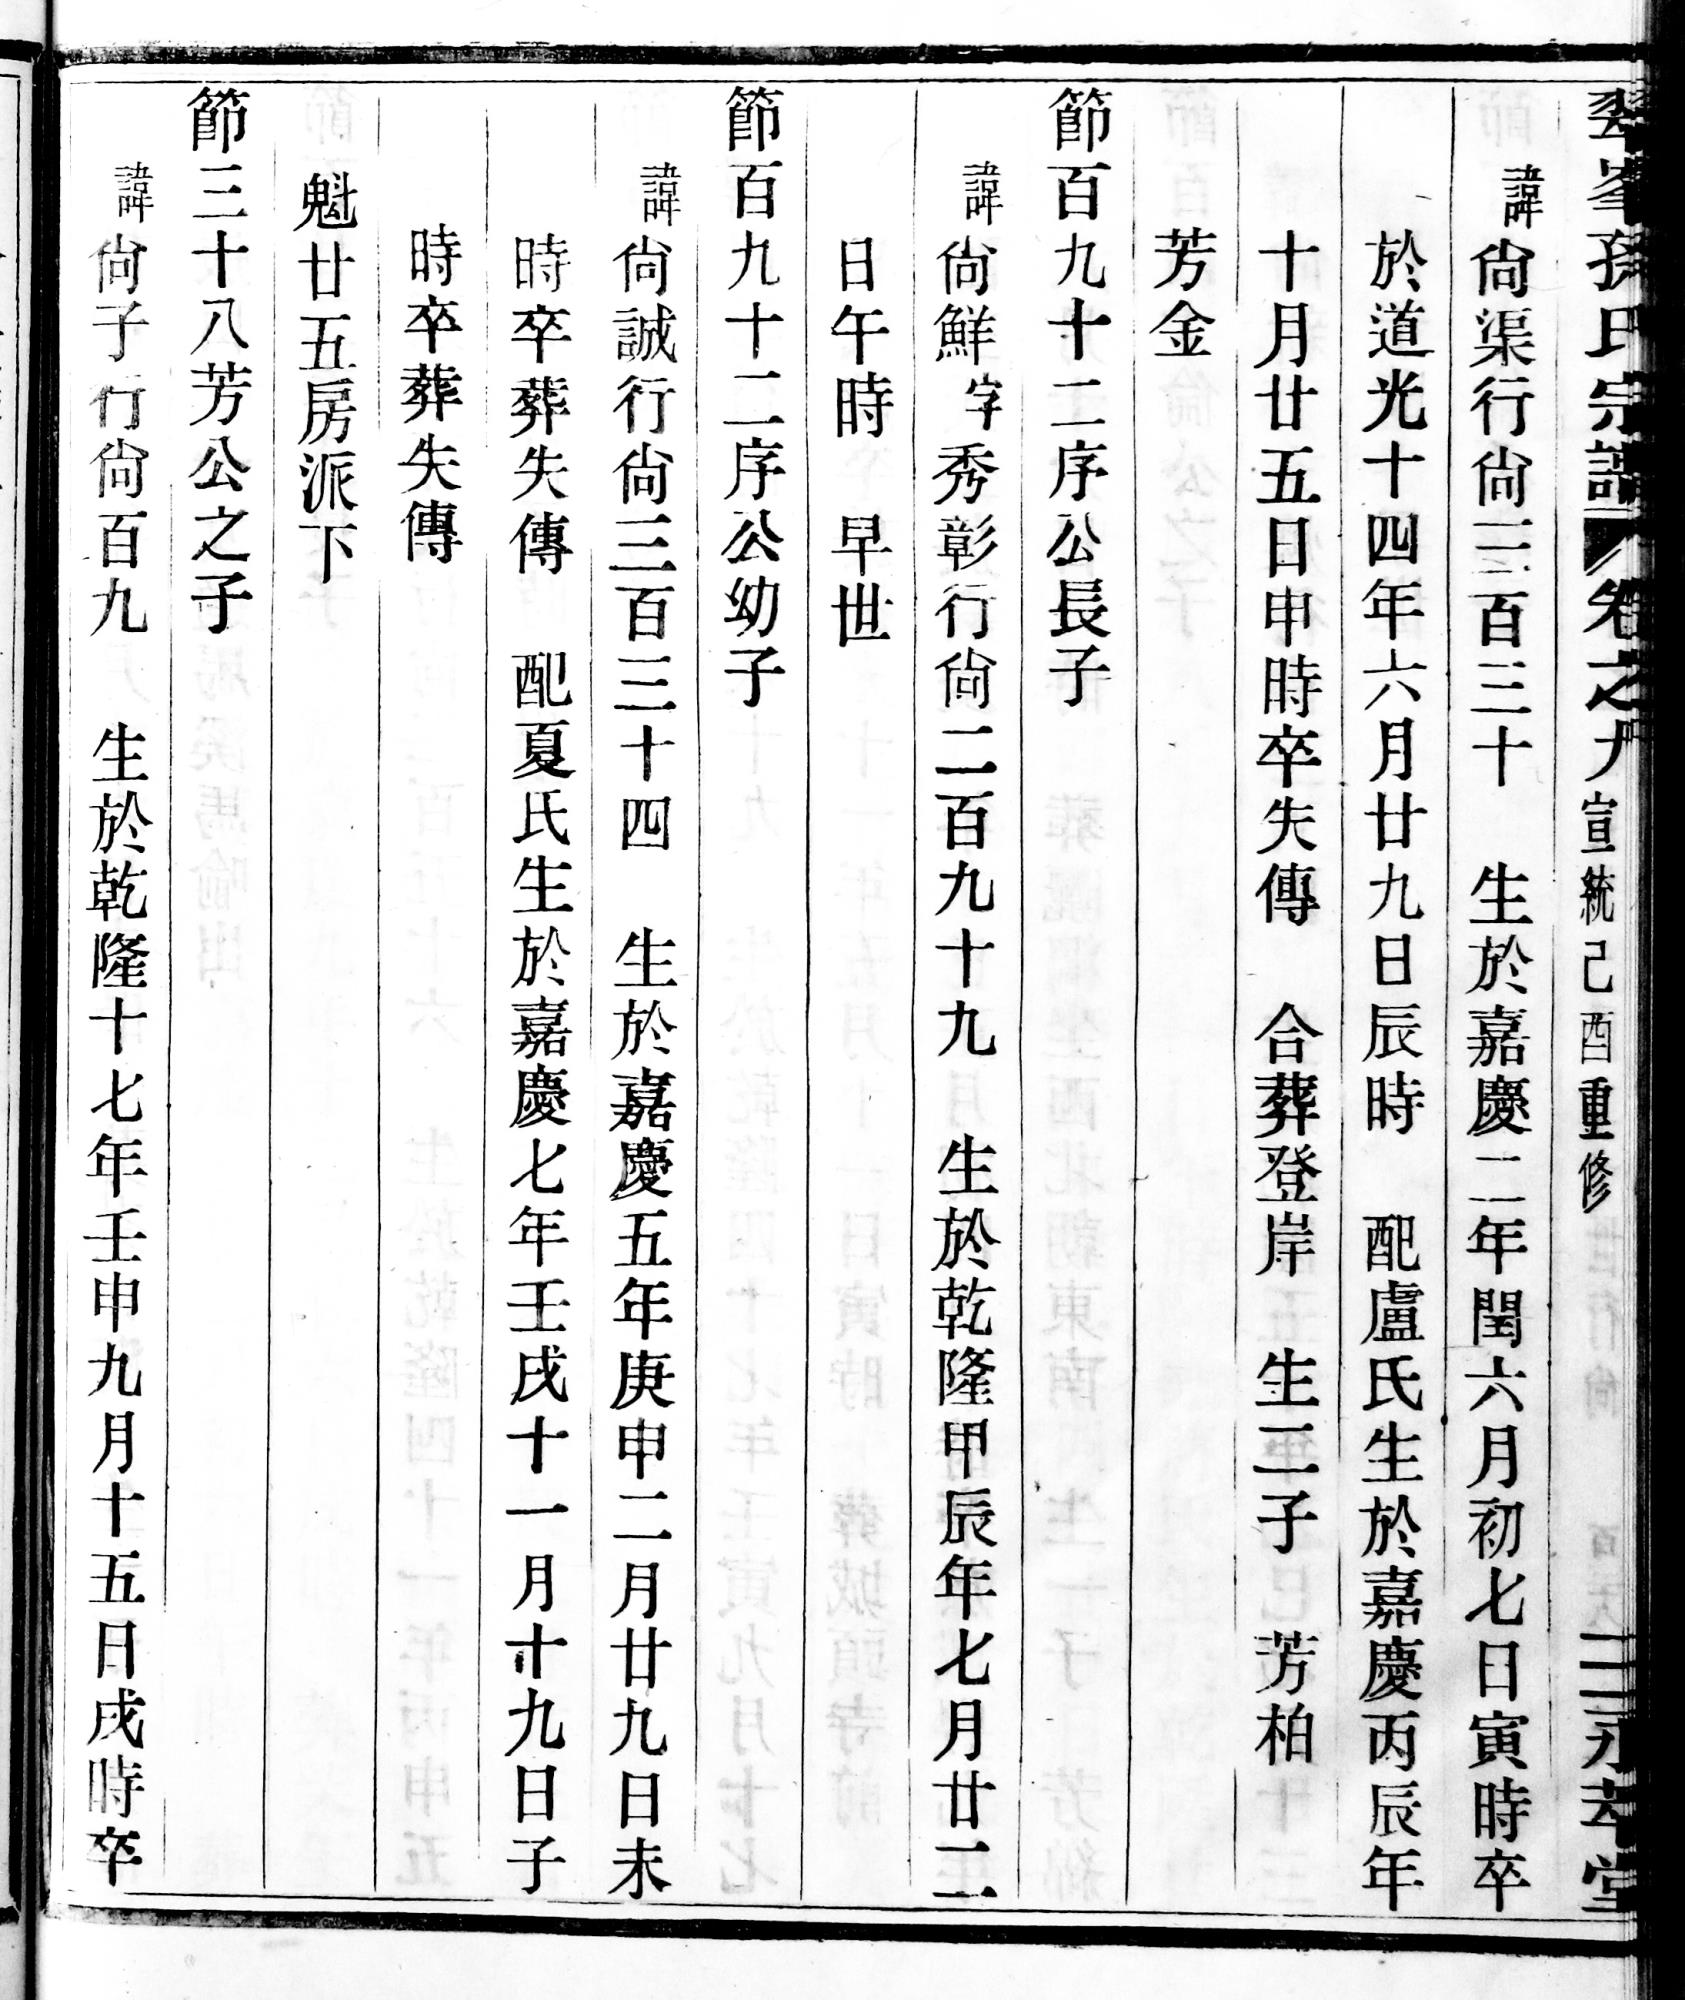 翠峯孫氏宗譜 卷之九 宣統己酉重修 永萃堂
諱尙渠行尙三百三十 生於嘉慶二年閏六月初七日寅時卒
於道光十四年六月廿九日辰時 配盧氏生於嘉慶丙辰年
十月廿五日申時卒失傳 合葬登岸 生二子 芳柏
芳金
節百九十二序公長子
諱尙鮮字秀彰行尙二百九十九 生於乾隆甲辰年七月廿二
日午時 早世
節百九十二序公幼子
諱尙誠行尙三百三十四 生於嘉慶五年庚申二月廿九日未
時卒葬失傳 配夏氏生於嘉慶七年壬戌十一月十九日子
時卒葬失傳
魁廿五房派下
節三十八芳公之子
諱尙子行尙百九 生於乾隆十七年壬申九月十五日戌時卒